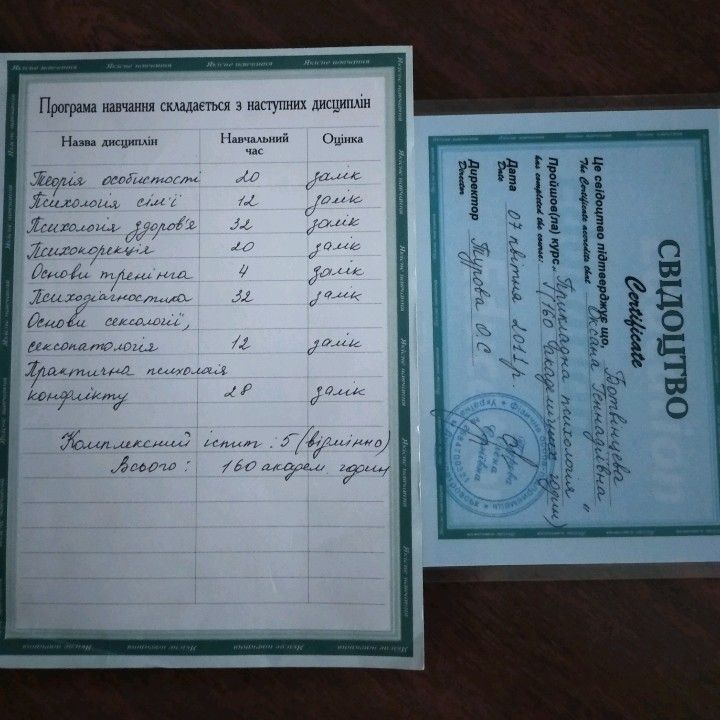 Програма навчання складається з наступних дисциплін
Назва дисциплін Навчальний час Оцінка
Теорія особистості 20 залік
Психологія сім'ї 12 залік
Психологія здоров'я 32 залік
Психокорекція 20 залік
Основи тренінга 4 залік
Психодіагностика 32 залік
Основи сексології,
сексопатологія 12 залік
Практична психологія
конфлікту 28 залік
Комплексний іспит: 5 (відмінно)
Всього: 160 академ. годин
СВІДОЦТВО
Certificate
Це свідоцтво підтверджує що, Ботвинцева
The Certificate accredits that Оксана Геннадіївна
Пройшов(ла) курс „Прикладна психологія"
has completed the course: (160 академічних годин)
Дата 07 квітня 2011р.
Date
Директор Турова О.С
Director